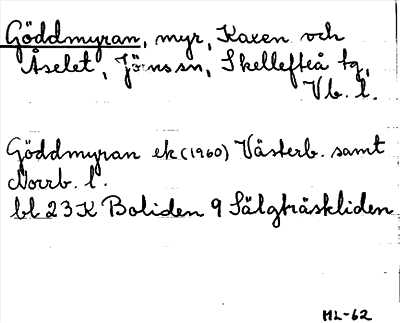 Göddmyran, myr, Kaxen och
Åselet, Jörns sn, Skellefteå tg,
Vb. l.
Göddmyran ek (1960) Västerb. samt
Norrb. l.
bl 23 K Boliden 9 Sälgträskliden
ML-62